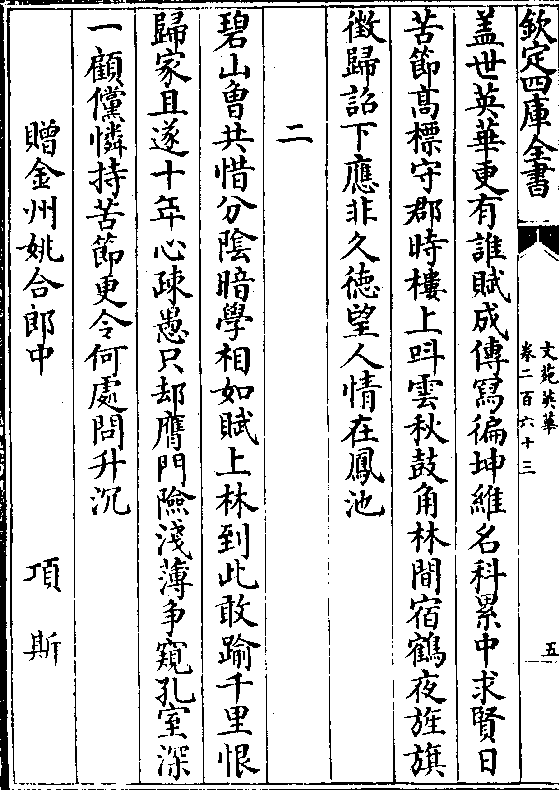 欽定四庫全書
文苑英華
卷二百六十三
五
盖世英華更有誰賦成傳寫徧坤維名科累中求賢日
苦節髙標守郡時樓上呌雲秋鼓角林間宿鶴夜旌旗
徵歸詔下應非久徳望人情在鳳池
二
碧山曾共惜分陰暗學相如賦上林到此敢踰千里恨
歸家且遂十年心疎愚只却膺門險淺薄争窺孔室深
一顧儻憐持苦節更令何處問升沉
贈金州姚合郎中
項斯